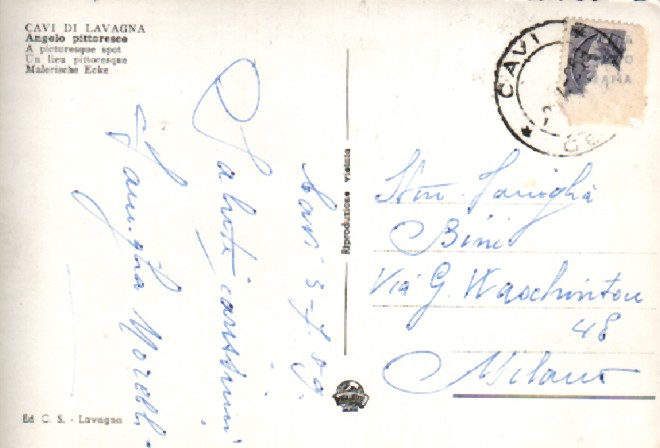 CAVI DI LAVAGNA
Angelo pittoresco
A picturesque spot
Un lieu pittoresque
Malerische Ecke
Cavi 3-7.59.
Saluti carissimi
Famiglia Morelli
Riproduzione vietata
CAVI
GE
Famiglia
Bini
Via G. Waschinton
48
Milano
Ed C. S. - Lavagna